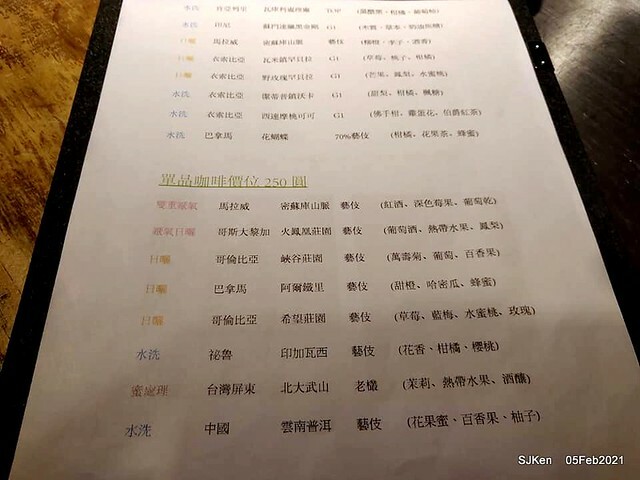 水洗 肯亞列里 瓦庫利處理廠 TOP
水洗 印尼
日曬 馬拉威 密蘇庫山脈 藝伎 (柳橙、李子、酒香)
日曬 衣索比亞 瓦米鎮罕貝拉 G1 (草莓、桃子、柑橘)
日曬 衣索比亞 野玫瑰罕貝拉 G1 (芒果、鳳梨、水蜜桃)
水洗 衣索比亞 潔蒂普鎮沃卡 G1 (甜梨、柑橘、楓糖)
水洗 衣索比亞 西達摩桃可可 G1 (佛手柑、雞蛋花、伯爵紅茶)
水洗 巴拿馬 花蝴蝶 70%藝伎 (柑橘、花果茶、蜂蜜)
單品咖啡價位 250 圓
雙重厭氧 馬拉威 密蘇庫山脈 藝伎 (紅酒、深色莓果、葡萄乾)
厭氧日曬 哥斯大黎加 火鳳凰莊園 藝伎 (葡萄酒、熱帶水果、鳳梨)
日曬 哥倫比亞 峽谷莊園 藝伎 (萬壽菊、葡萄、百香果)
日曬 巴拿馬 阿爾鐵里 藝伎 (甜橙、哈密瓜、蜂蜜)
日曬 哥倫比亞 希望莊園 藝伎 (草莓、藍莓、水蜜桃、玫瑰)
水洗 祕魯 印加瓦西 藝伎 (花香、柑橘、櫻桃)
蜜處理 台灣屏東 北大武山 老欉 (茉莉、熱帶水果、酒釀)
水洗 中國 雲南普洱 藝伎 (花果蜜、百香果、柚子)
SJKen 05Feb2021